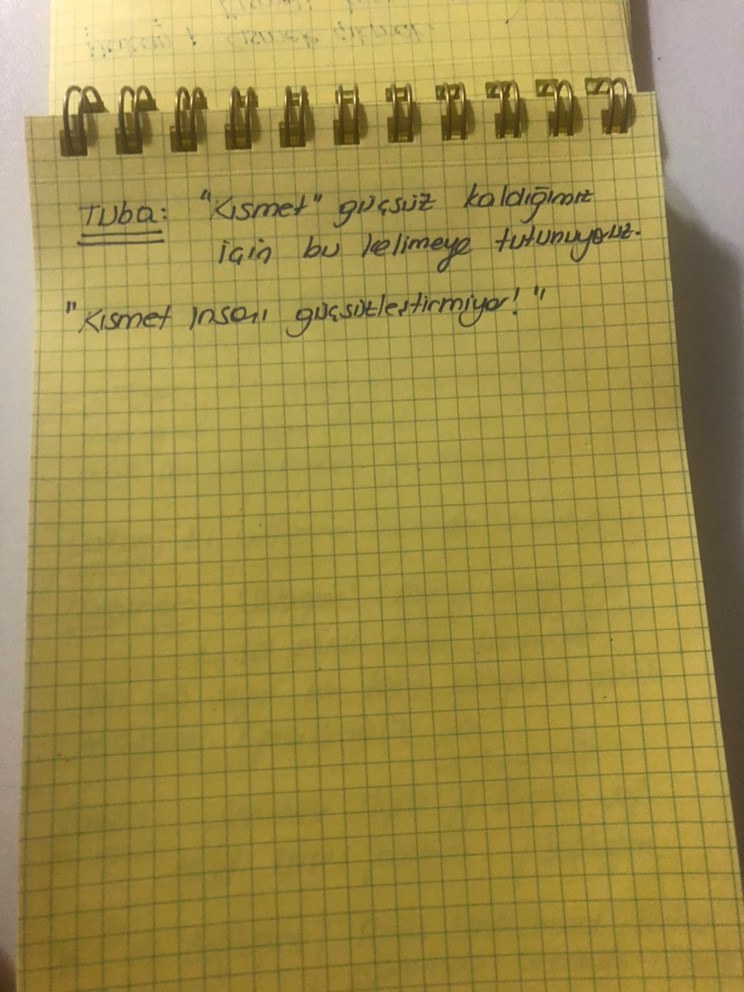 Tuba: "Kısmet" güçsüz kaldığımız
için bu kelimeye tutunuyoruz.
"Kısmet insanı güçsüzleştirmiyor!"